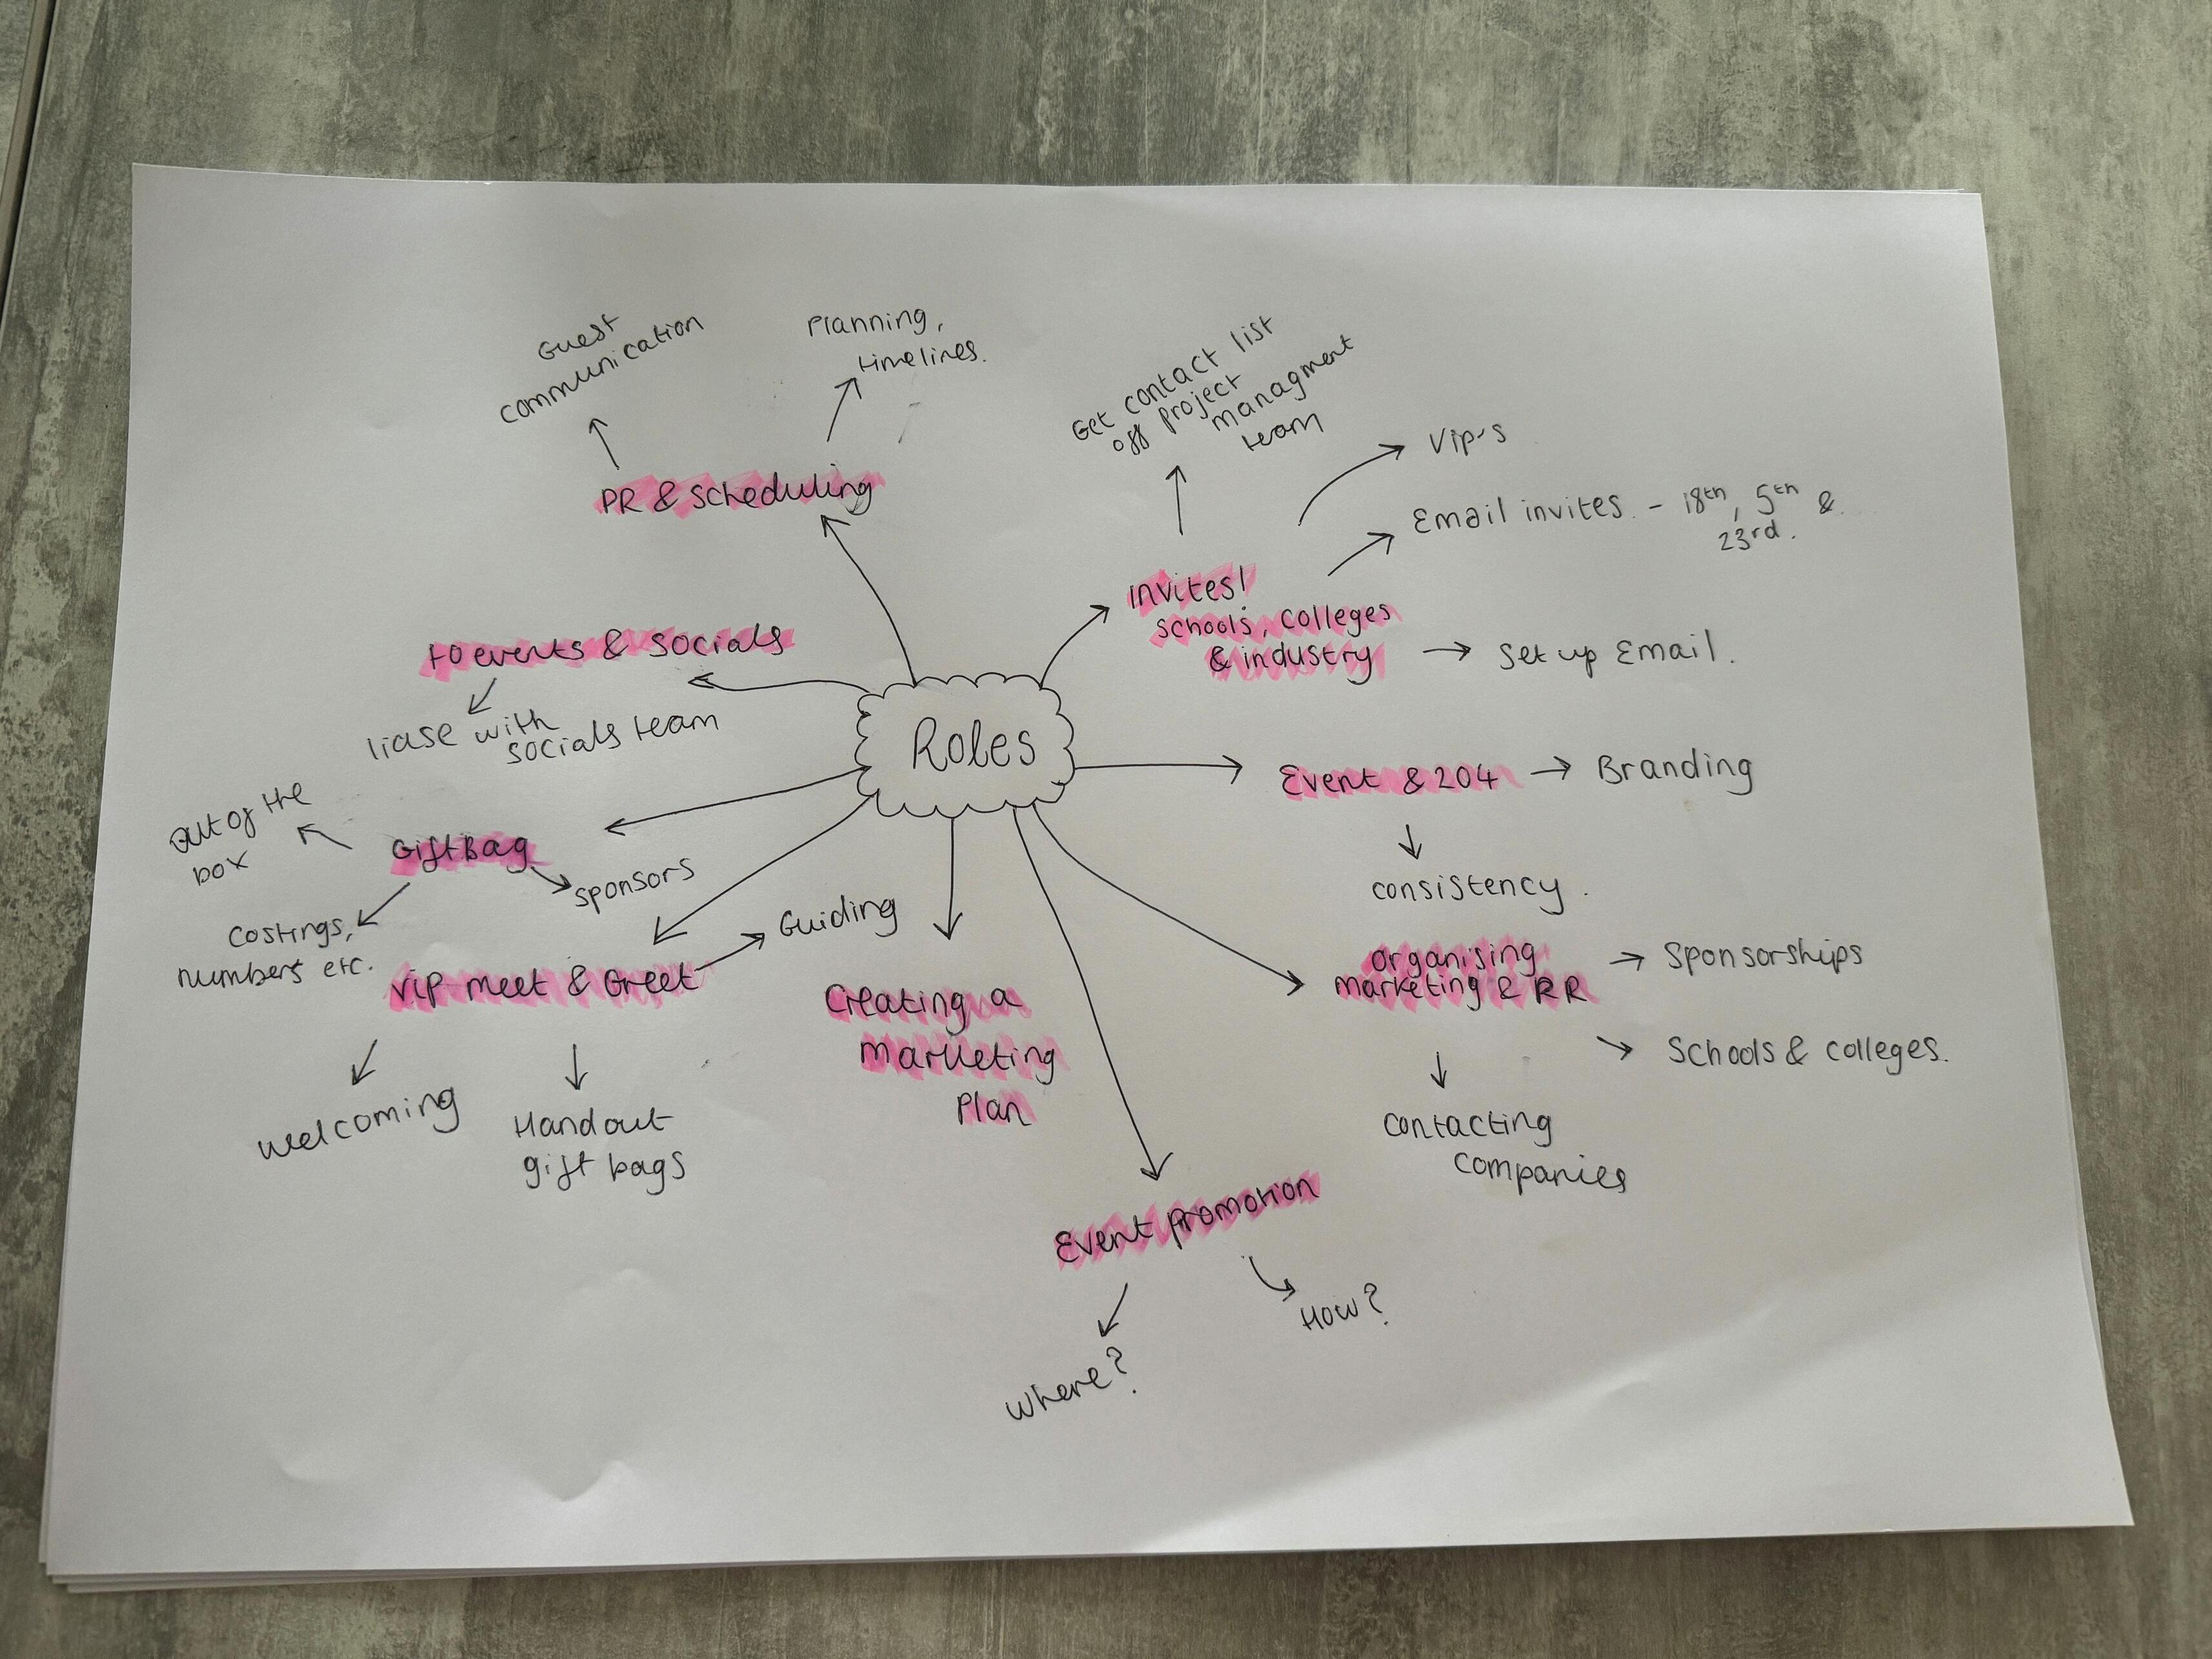 Roles
PR & scheduling
Guest
communication
Planning,
timelines.
Invites!
schools, colleges
& industry
Get contact list
off project
managment
team
Vip's
Email invites - 18th, 5th &
23rd.
Set up Email.
Event & 204
Branding
consistency.
organising
marketing & RR
Sponsorships
Schools & colleges.
Contacting
companies
Event promotion
How?
Where?
Creating a
Marketing
Plan
VIP meet & Greet
Guiding
Handout
gift bags
Welcoming
Gift Bag
Sponsors
Costings,
numbers etc.
Out of the
box
events & socials
liase with
socials team